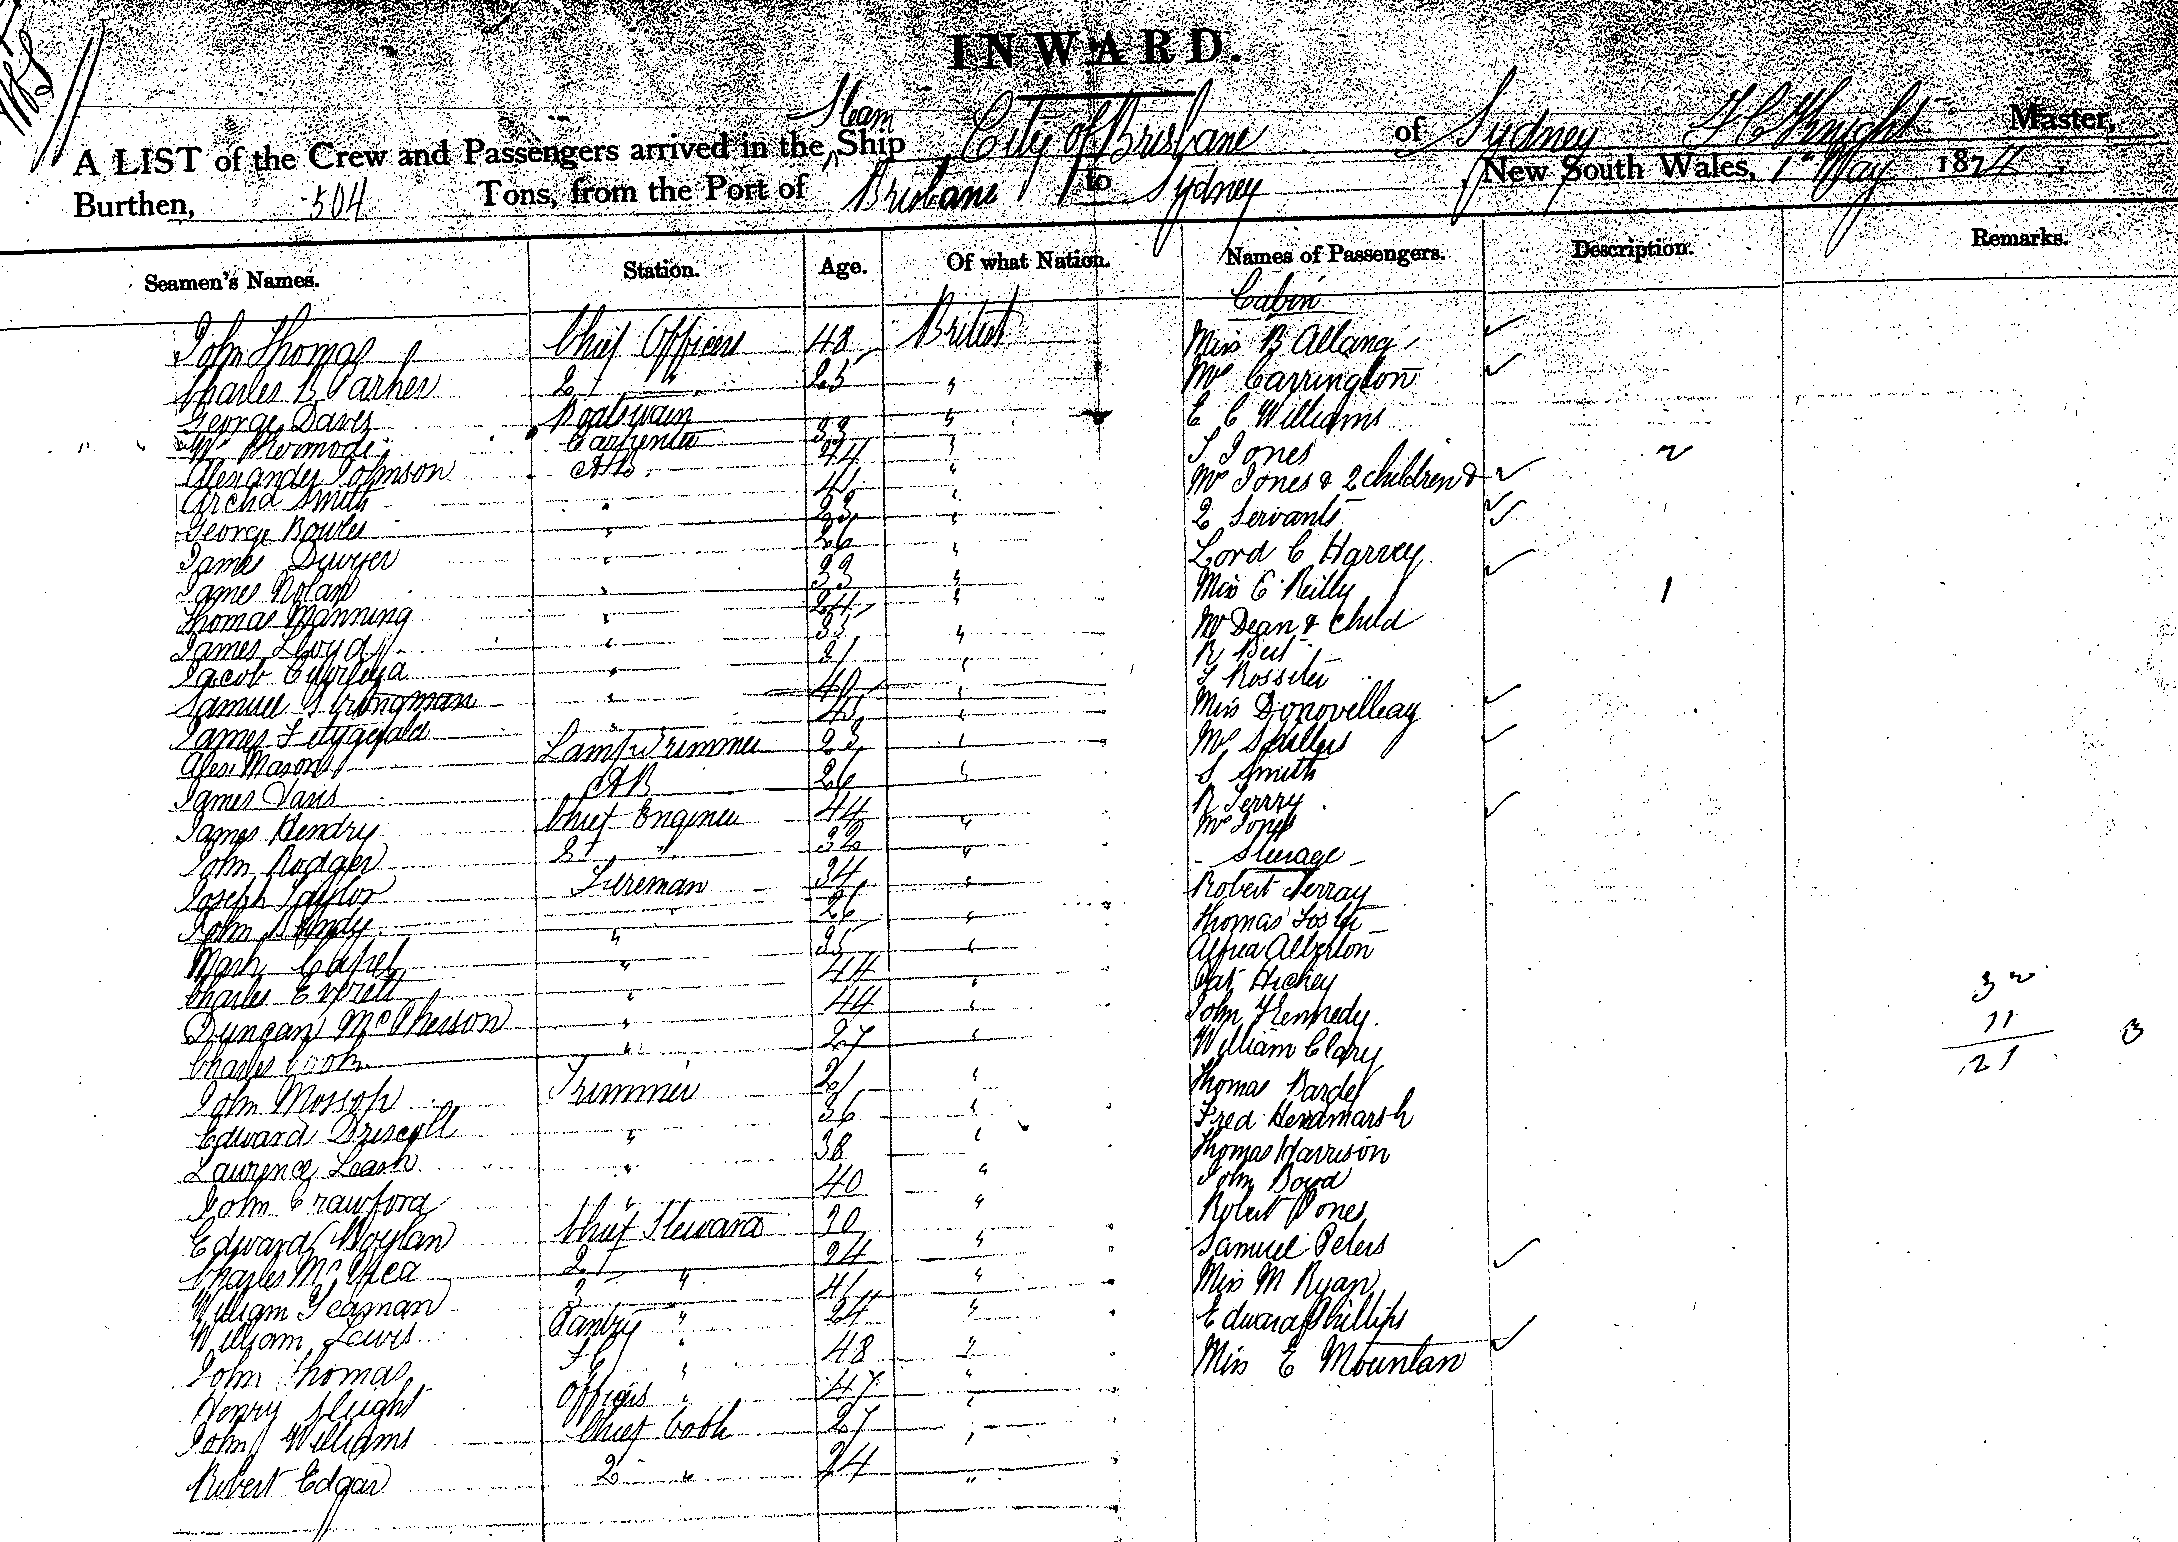 INWARD.
Steam
A LIST of the Crew and Passengers arrived in the Ship City of Brisbane of Sydney Master,
Burthen, 504 Tons, from the Port of Brisbane to Sydney New South Wales, 1st May 1874
Seamen's Names. Station. Age. Of what Nation. Names of Passengers. Description. Remarks.
Cabin
John Thomas Chief Officer 48 British Miss B
Charles B Parker 2d " 25 " Mrs Carrington
George Davis Boatswain 33 " E C Williams
Carpenter 44 " S Jones 2
Alexander Johnson AB " Mrs Jones & 2 children &
Archd Smith " 33 " 2 Servants
George Bowles " 26 " Lord C Harvey
James Dwyer " 33 " Miss C Reilly 1
James Nolan " 24 " Mr Dean & Child
Thomas Manning " 35 " R
James Lloyd " 31 " Rossiter
Jacob " 40 " Miss
Samuel Strongman " 45 " Mrs
James Fitzgerald Lamp Trimmer 23 " S Smith
Alex Mason AB 26 " R Terrry
James Davis Chief Engineer 44 " Mrs Jones
James Hendry 2d " 32 " Steerage
John Rodger Fireman 34 " Robert
Joseph Taylor " 26 " Thomas Foster
John " 35 " Alfred Alberton
Mark " 44 " Pat Hickey
Charles Everett " 44 " John Kennedy 32
Duncan McPherson " 27 " William Clary 11
Charles Cook Trimmer 21 " Thomas 21 3
John Mossop " 36 " Fred
Edward Driscoll " 38 " Thomas Harrison
Laurence Leash " 40 " John Boyd
John Crawford Chief Steward 30 " Robert
Edward Boylan 2d " 24 " Samuel Peters
Charles 3 " 41 " Miss M Ryan
William Seaman Pantry " 24 " Edward Phillips
William Lewis " 48 " Miss E Mountan
John Thomas Officers " 47 "
Henry Chief Cook 27 "
John Williams 2 " 24 "
Robert Edgar